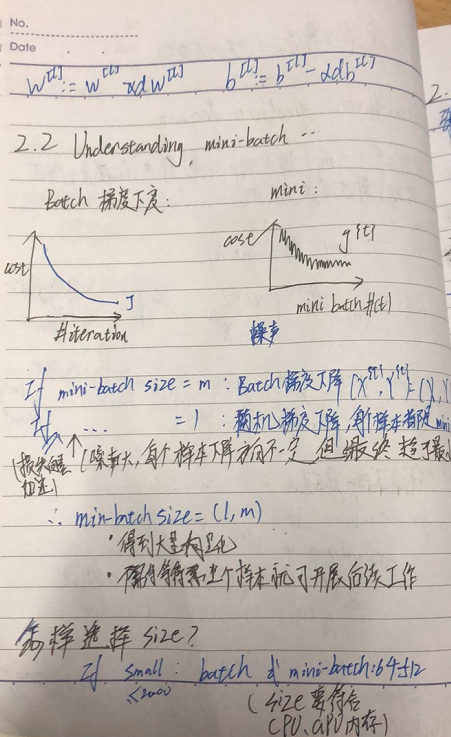 No.
Date
W^[l] := W^[l] - αdW^[l] b^[l] := b^[l] - αdb^[l]
2.2 Understanding mini-batch ...
Batch 梯度下度: mini:
cost J
#iteration
cost J^{t}
mini batch #(t)
噪声
If mini-batch size = m : Batch 梯度下降 (X^{t}, Y^{t}) = (X, Y
If ... = 1 : 随机梯度下降, 每个样本都是 mini
(噪声大, 每个样本下降方向不一定 但最终趋于最小
(损失向量
加速)
∴ min-batch size = (1, m)
· 得到大量向量化
· 个样本就可开展后续工作
怎样选择 size?
If small : batch or mini-batch: 64-512
≤2000
(size 要符合
CPU、GPU内存)